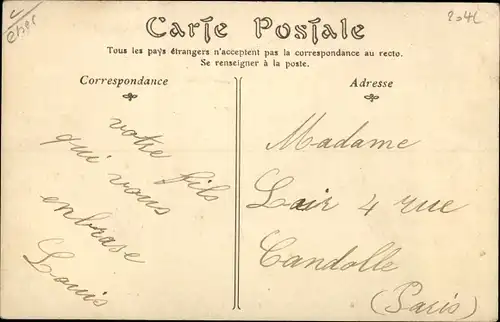 Carte Postale
Tous les pays étrangers n'acceptent pas la correspondance au recto.
Se renseigner à la poste.
Correspondance
Adresse
votre fils
qui vous
enbrase
Louis
Madame
Loir 4 rue
Candolle
(Paris)